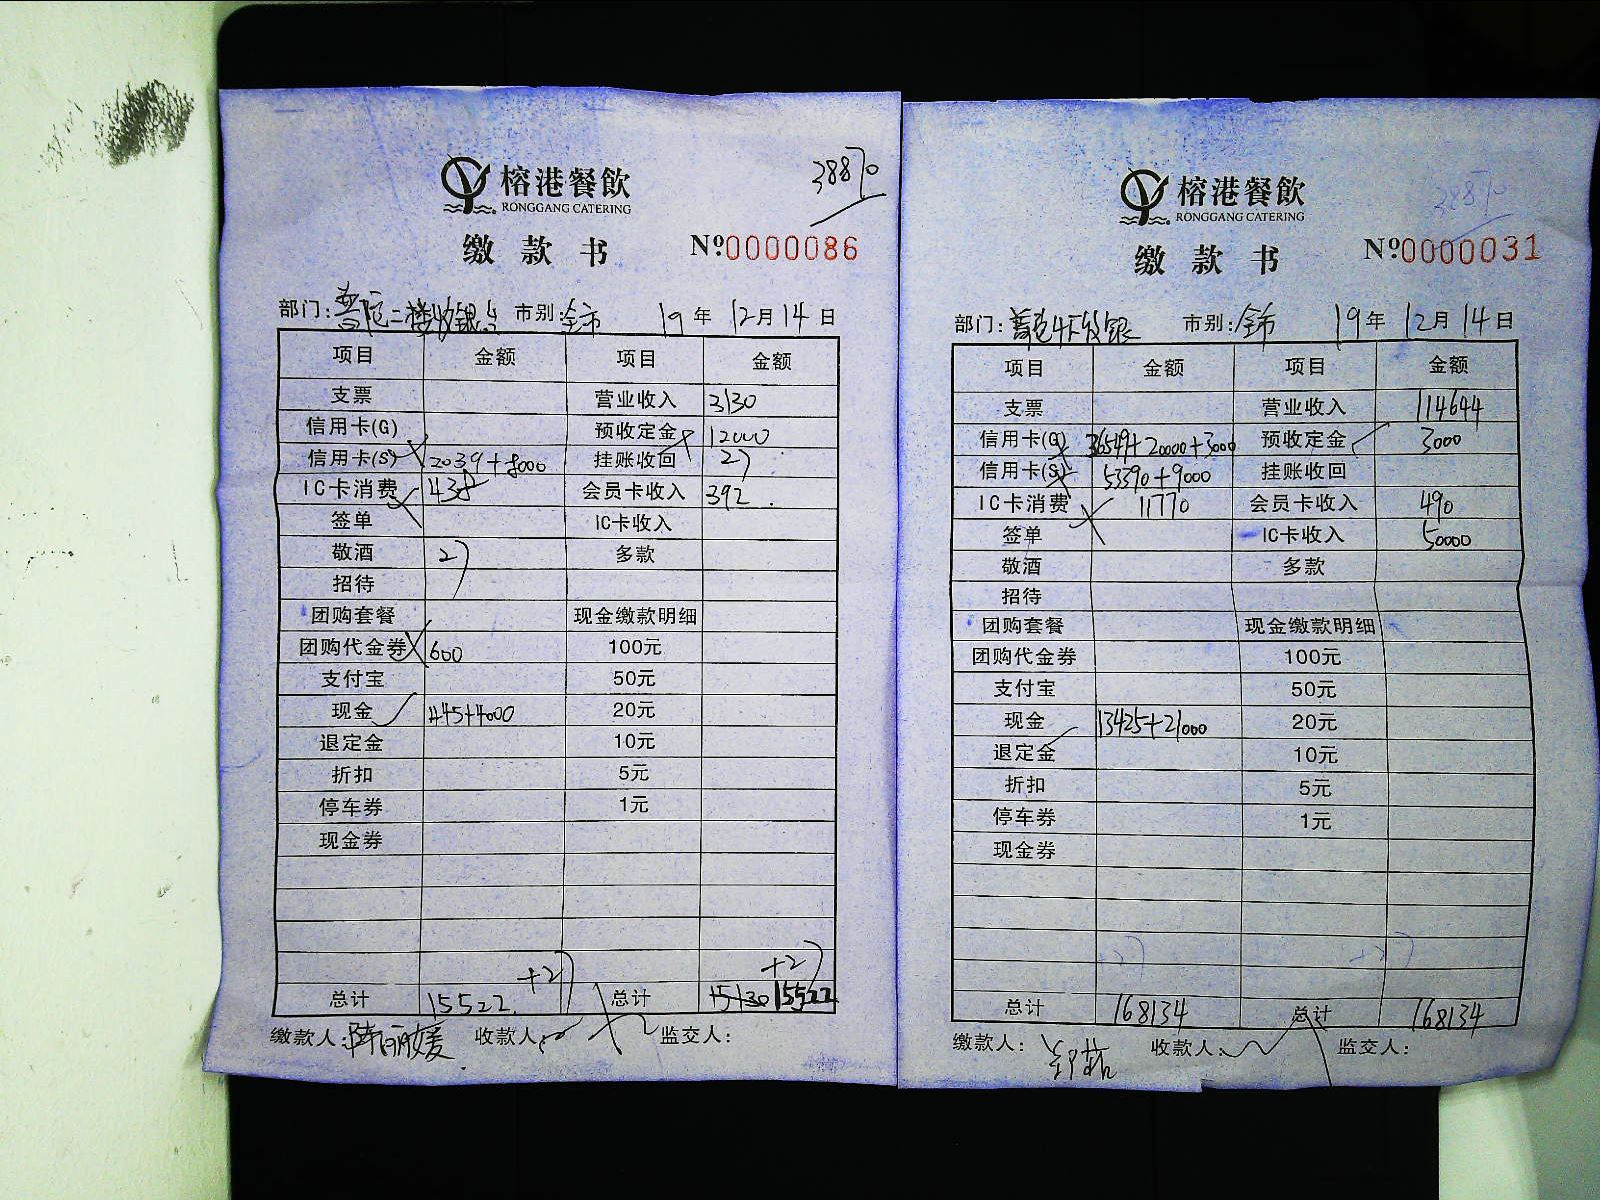 38870
榕港餐飲
RONGGANG CATERING
缴款书 №0000086
部门:普陀二楼收银台 市别:全市 19年12月14日
项目 金额 项目 金额
支票 营业收入 3130
信用卡(G) 预收定金 12000
信用卡(S) 2039+8000 挂账收回 27
IC卡消费 438 会员卡收入 392
签单 IC卡收入
敬酒 27 多款
招待
团购套餐 现金缴款明细
团购代金券 600 100元
支付宝 50元
现金 445+4000 20元
退定金 10元
折扣 5元
停车券 1元
现金券
+27 +27
总计 15522 总计 15130 15522
缴款人:陈丽媛 收款人: 监交人:
38870
榕港餐飲
RONGGANG CATERING
缴款书 №0000031
部门:普陀 收银 市别:全市 19年12月14日
项目 金额 项目 金额
支票 营业收入 114644
信用卡(G) 36549+20000+3000 预收定金 3000
信用卡(S) 53390+9000 挂账收回
IC卡消费 11770 会员卡收入 490
签单 IC卡收入 50000
敬酒 多款
招待
团购套餐 现金缴款明细
团购代金券 100元
支付宝 50元
现金 13425+21000 20元
退定金 10元
折扣 5元
停车券 1元
现金券
+27 +27
总计 168134 总计 168134
缴款人: 收款人: 监交人: